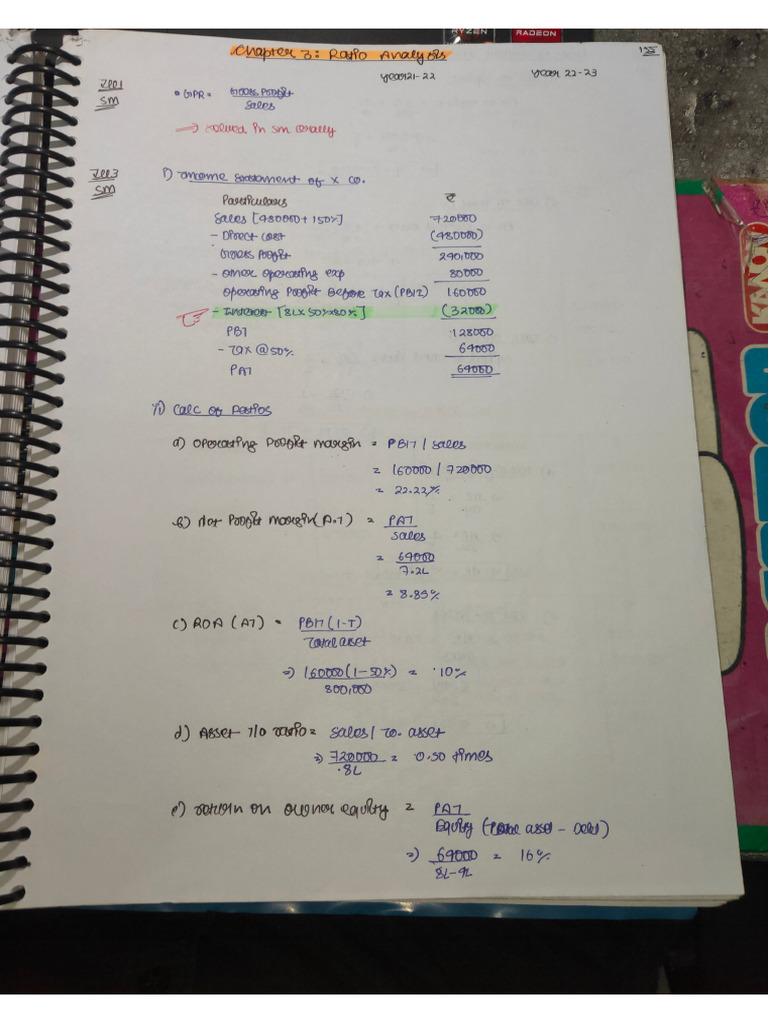 RYZEN
RADEON
Chapter 3: Ratio Analysis
155
year 21-22 year 22-23
Ill 1
SM
• GPR = Gross Profit
Sales
→ solved in SM orally
Ill 3
SM
i) Income Statement of X Co.
Particulars ₹
Sales [480000 + 150%] 720000
- Direct cost (480000)
Gross Profit 240,000
- Other operating exp 80000
Operating Profit Before Tax (PBIT) 160000
- Interest [8L x 50% x 80%] (32000)
PBT 128000
- Tax @ 50% 64000
PAT 64000
ii) Calc of Ratios
a) Operating Profit Margin = PBIT / Sales
= 160000 / 720000
= 22.22%
b) Net Profit Margin (A.T) = PAT
Sales
= 64000
7.2L
= 8.89%
c) ROA (AT) = PBIT (1-T)
Total asset
⇒ 160000 (1-50%) = 10%
800,000
d) Asset T/O ratio = Sales / To. asset
⇒ 720000 = 0.90 times
8L
e) return on owner equity = PAT
Equity (Total asset - Debt)
⇒ 64000 = 16%
8L-4L
KANON